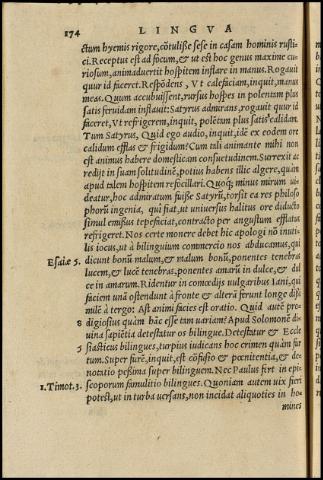 174 LINGVA
ctum hyemis rigore, cōtulisse sese in casam hominis rusti-
ci. Receptus est ad focum, & ut est hoc genus maxime cu
riosum, animaduertit hospitem inflare in manus. Rogauit
quur id faceret. Respōdens, Vt calefaciant, inquit, manus
meas. Quum accubuissent, rursus hospes in polentam plus
satis feruidam inflauit: Satyrus admirans, rogauit quur id
faceret, Vt refrigerem, inquit, polētam plus satis calidam.
Tum Satyrus, Quid ego audio, inquit, idē ex eodem ore
calidum efflas & frigidum? Cum tali animante mihi non
est animus habere domesticam consuetudinem. Surrexit ac
redijt in suam solitudinē, potius habens illic algere, quàm
apud talem hospitem refocillari. Quoq; minus mirum ui-
deatur, hoc admiratum fuisse Satyrū, torsit ea res philoso
phorū ingenia, qui fiat, ut uniuersus halitus ore diducto
simul emissus tepefaciat, contracto per angustum efflatus
refrigeret. Nos certe monere debet hic apologi nō inuti-
lis iocus, ut à bilinguium commercio nos abducamus, qui
Esaiæ 5. dicunt bonū malum, & malum bonū, ponentes tenebras
lucem, & lucē tenebras, ponentes amarū in dulce, & dul
ce in amarum. Ridentur in comœdijs uulgaribus Iani, qui
faciem unā ostendunt à fronte & alterā ferunt longe dissi
milē à tergo: Ast animi facies est oratio. Quid autē pro-
8 digiosius quàm hāc esse tim uariam? Apud Solomonē di
uina sapiētia detestatur os bilingue. Detestatur & Eccle
5 siasticus bilingues, turpius iudicans hoc crimen quàm fur
tum. Super furē, inquit, est cōfusio & pœnitentia, & de-
notatio pessima super bilinguem. Nec Paulus firt in epi-
1. Timot. 3. scoporum famulitio bilingues. Quoniam autem uix fieri
potest, ut in turba uersans, non incidat aliquoties in ho-
mines